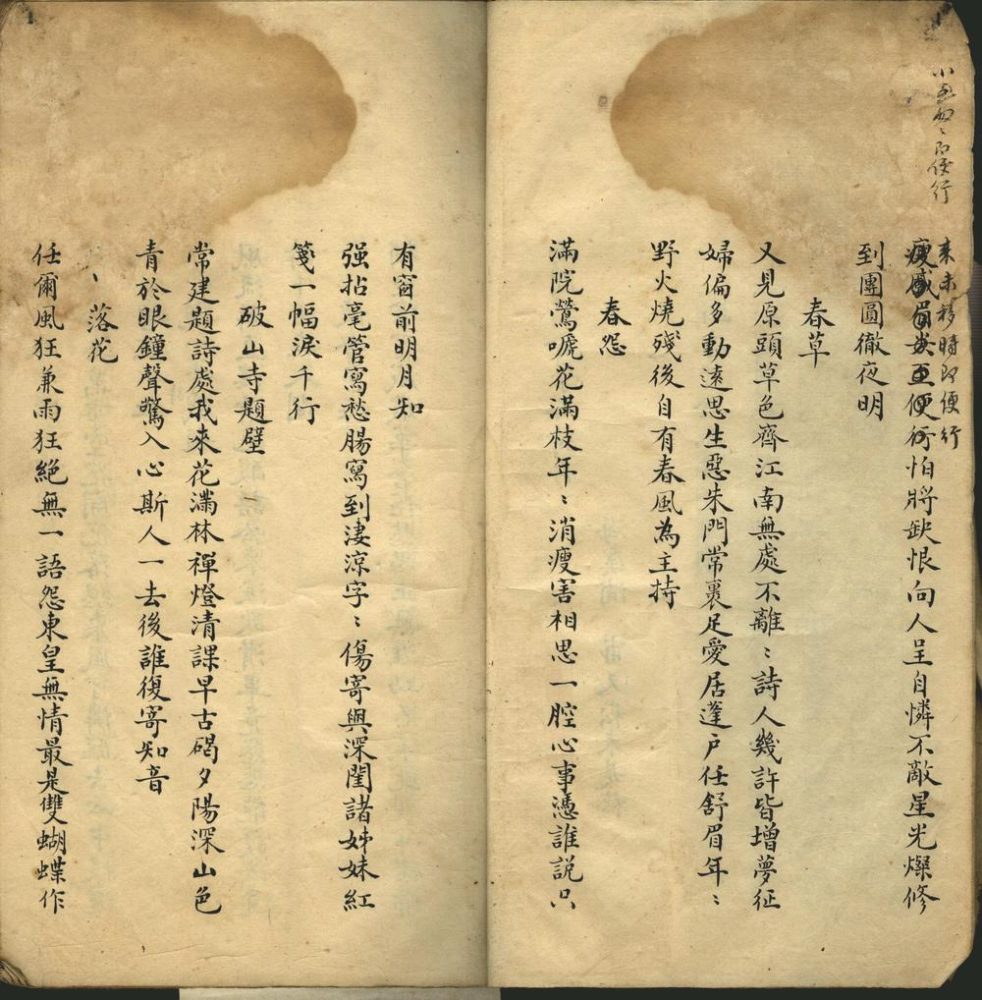 來未移時即便行
便行怕將缺恨向人呈自憐不敵星光燦修
到團圓徹夜明
春草
又見原頭草色齊江南無處不離〻詩人幾許皆增夢征
婦偏多動遠思生惡朱門常裹足愛居蓬戶任舒眉年〻
野火燒殘後自有春風為主持
春怨
滿院鶯嚦花滿枝年〻消瘦害相思一腔心事憑誰說只
有窗前明月知
强拈毫管寫愁腸寫到淒涼字〻傷寄與深閨諸姊妹紅
箋一幅淚千行
破山寺題壁
常建題詩處我來花滿林禪燈清課早古碣夕陽深山色
青於眼鐘聲驚入心斯人一去後誰復寄知音
、落花
任爾風狂兼雨狂絕無一語怨東皇無情最是雙蝴蝶作